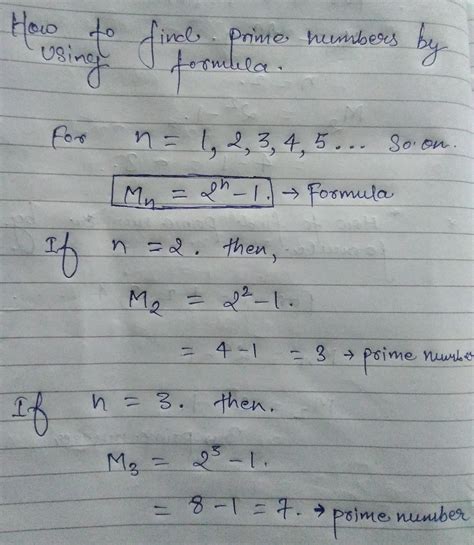 How to find prime numbers by
using formula.
For n = 1, 2, 3, 4, 5 ... So on.
Mₙ = 2ⁿ - 1. → Formula
If n = 2. then,
M₂ = 2² - 1.
= 4 - 1 = 3 → prime number
If n = 3. then.
M₃ = 2³ - 1.
= 8 - 1 = 7. → prime number